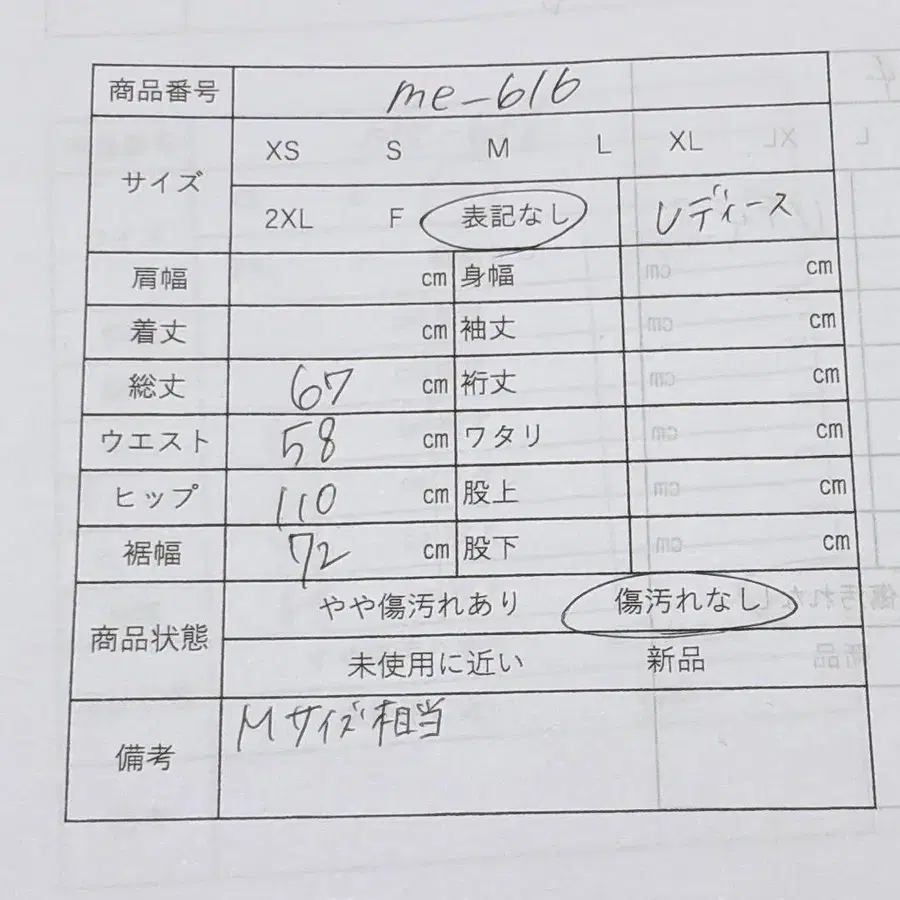 商品番号 me-616
サイズ XS S M L XL
2XL F 表記なし レディース
肩幅 cm 身幅 cm
着丈 cm 袖丈 cm
総丈 67 cm 裄丈 cm
ウエスト 58 cm ワタリ cm
ヒップ 110 cm 股上 cm
裾幅 72 cm 股下 cm
商品状態 やや傷汚れあり 傷汚れなし
未使用に近い 新品
備考 Mサイズ相当